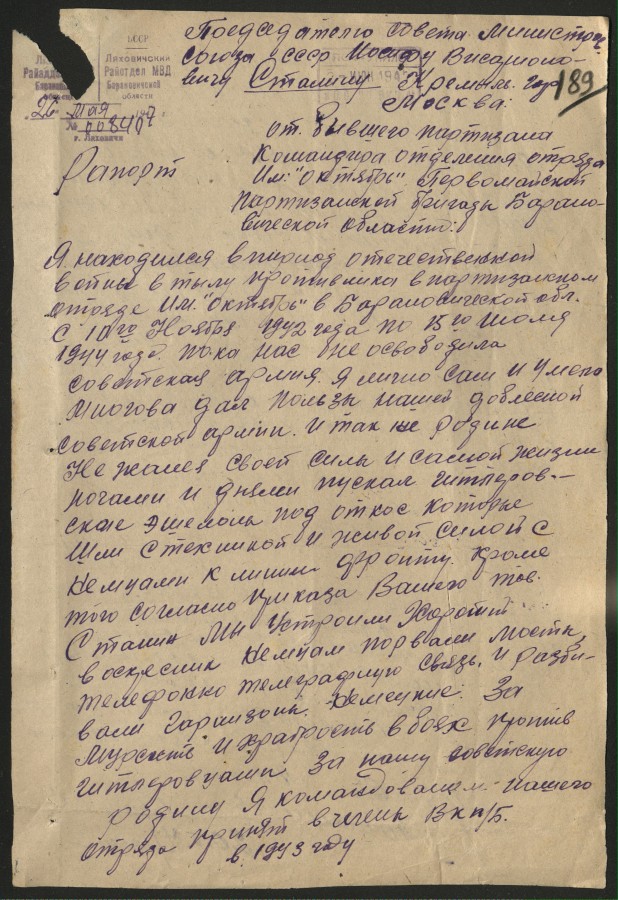 БССР
Ляховичский
Райотдел МВД
Барановичской
области
26 Мая 1947
№ 00840
г. Ляховичи
189
Председателю Совета Министров
Союза СССР Иосифу Висарионо-
вичу Сталину Кремль. гор.
Москва:
от бывшего партизана
Командира отделения отряда
Им: "Октябрь" Первомайской
партизанской бригады Барано-
вической области:
Рапорт
Я находился в период отечественной
войны в тылу противника в партизанском
отряде Им. "Октябрь" в Барановической обл.
С 10го Ноября 1942 года по 15го июля
1944 года. пока нас не освободила
советская армия. Я лично сам и
многова дал пользы нашей доблесной
советской армии. И так же родине
Не жалея своей силы и самой жизни
ночами и днями пускал гитлеров-
ские эшелоны под откос которые
Шли с техникой и живой силой с
немцами к линии фронту. Кроме
того согласно приказа Вашего тов.
Сталин Мы Устроили Хороший
воскресник Немцам порвали мосты,
телефонно телеграфную связь. И разби-
вали гарнизоны. немецкие. За
Мужество и храбрость в боях против
гитлеровцами За нашу советскую
родину Я командованием нашего
отряда принят в члены ВКП/Б.
в 1943 году